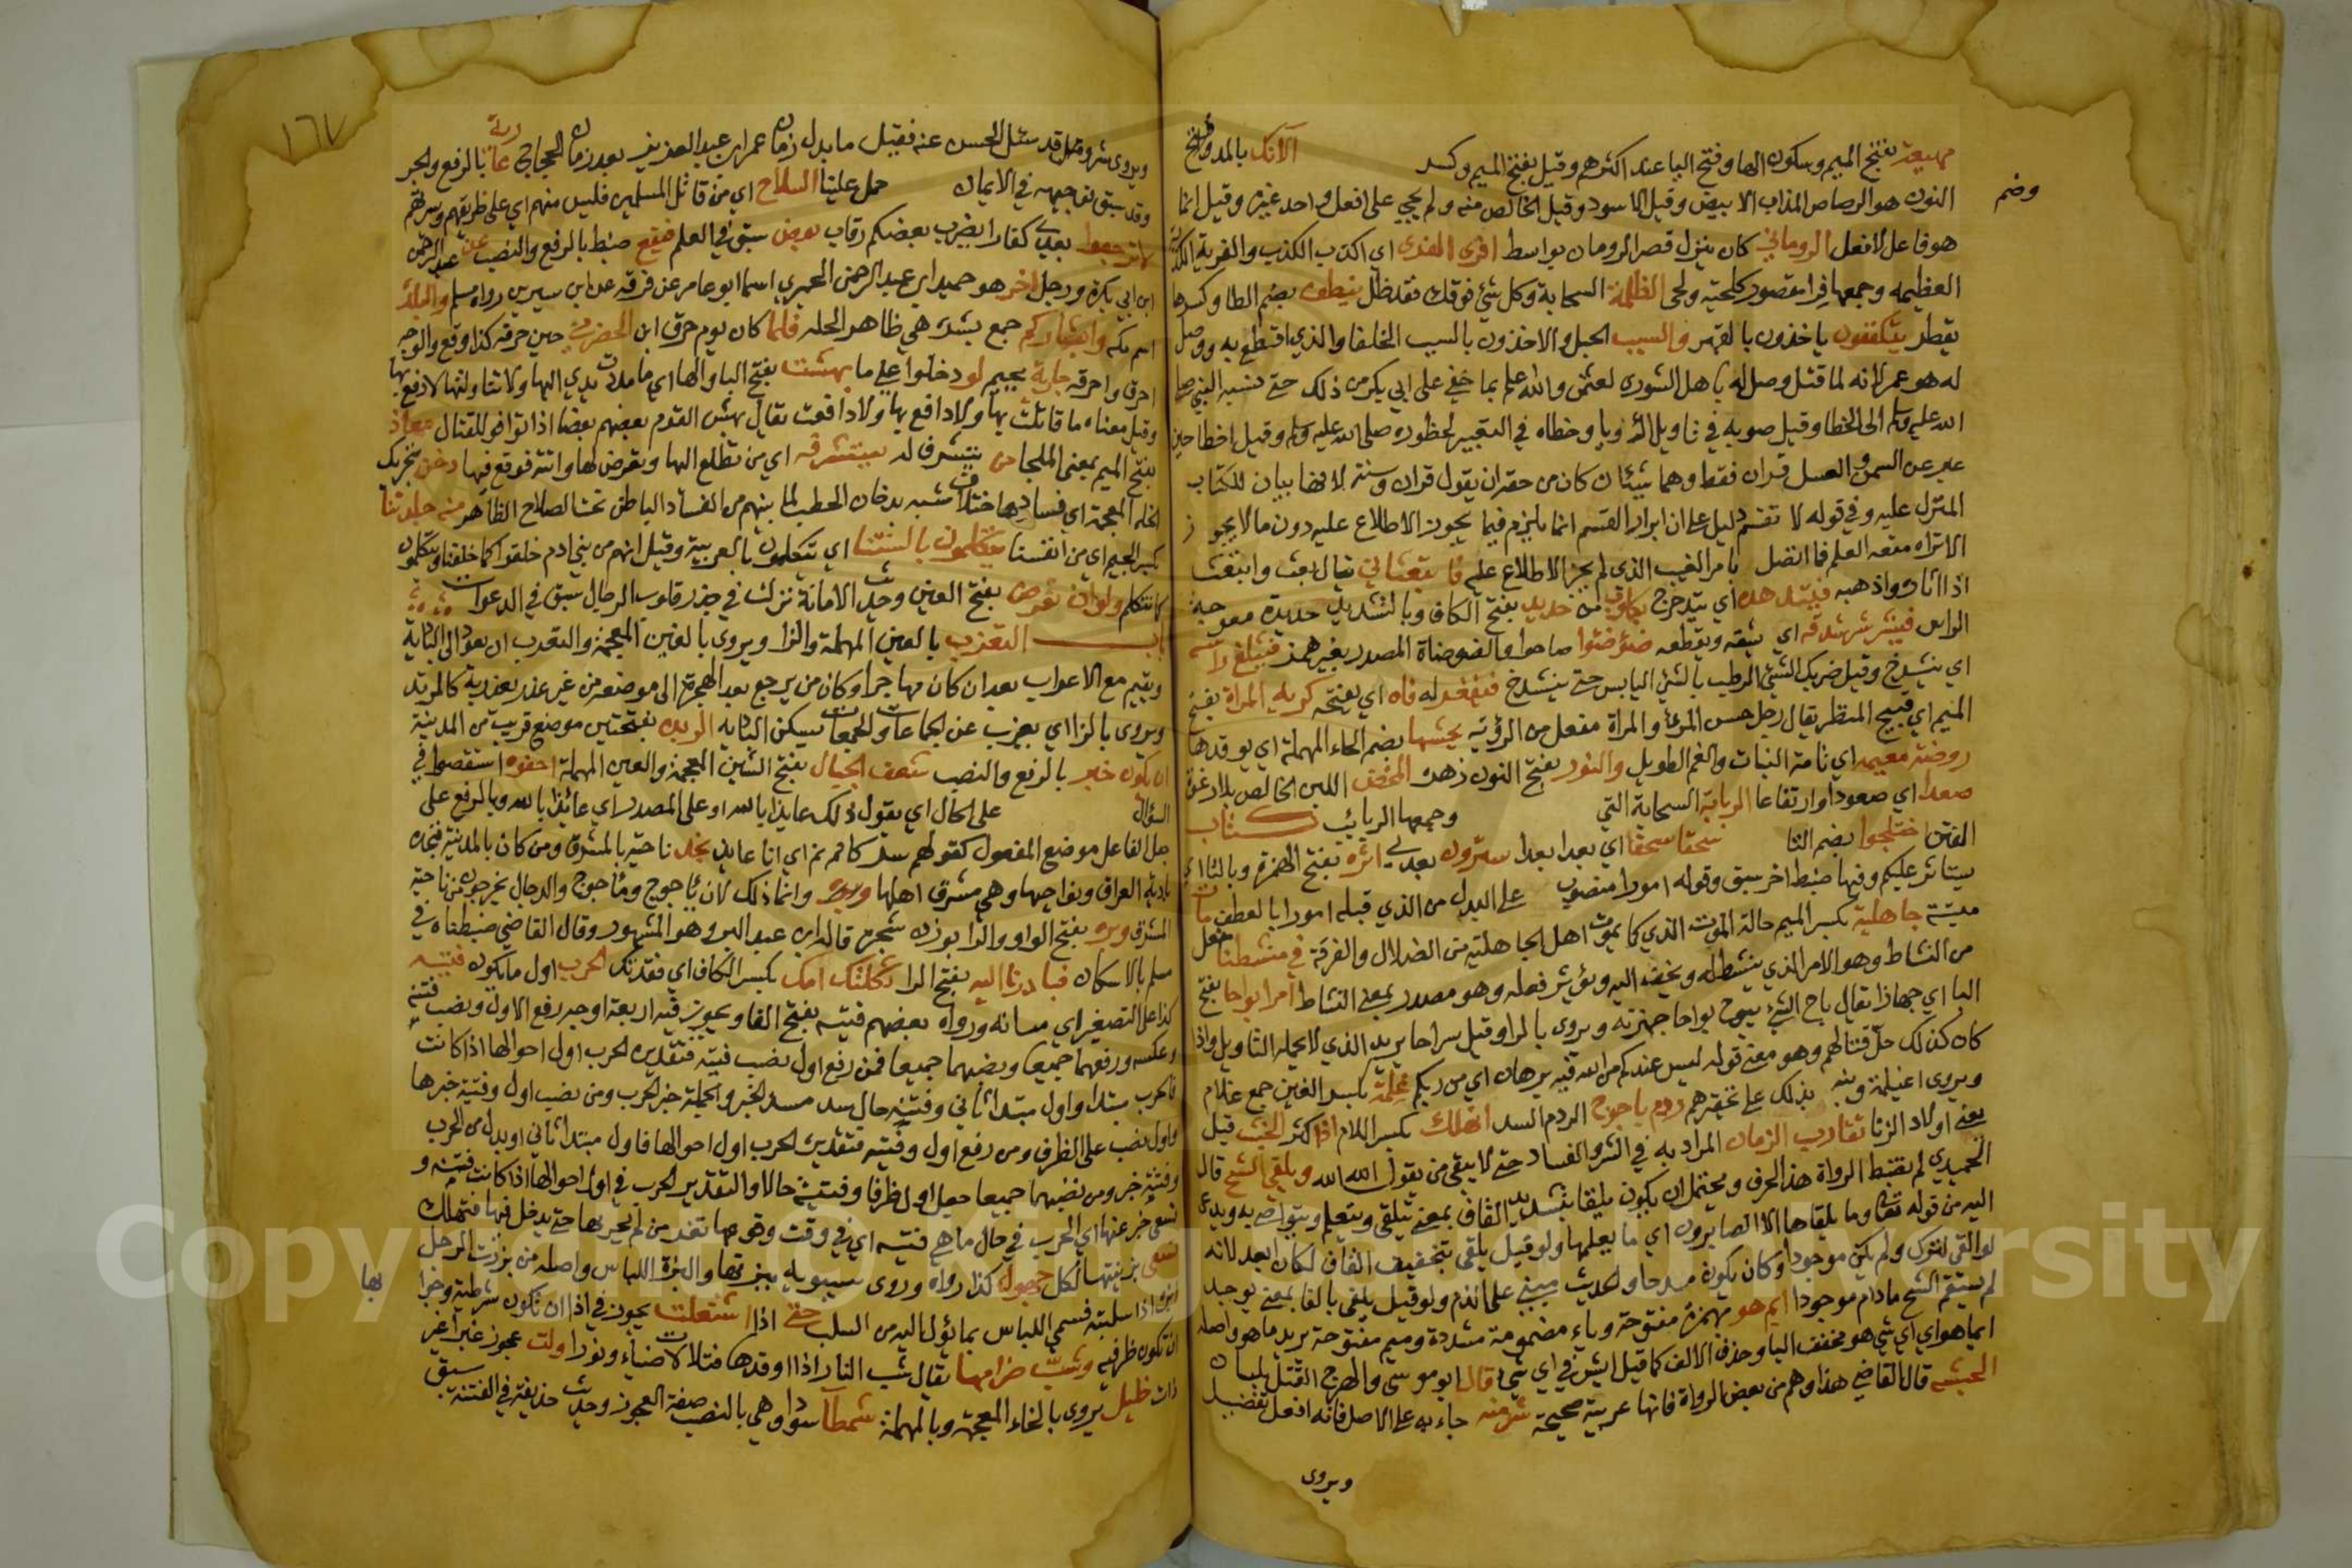 مهيعة بفتح الميم وسكون الها وفتح اليا عند اكثرهم وقيل بفتح الميم وكسر الآنك بالمد وفتح
وضم
النون هو الرصاص المذاب الابيض وقيل الاسود وقيل الخالص منه ولم يجي على افعل واحد غيره وقيل انما
هو فاعل لا فعل الروماني كان ينزل قصر الرومان بواسط افرى الفرى اي اكذب الكذب والفرية الكذبة
العظيمه وجمعها فرا مقصور كلحية ولحى الظلة السحابة وكل شئ فوقك فقد ظلل ينطف بضم الطا وكسرها
يقطر يتكففون ياخذون باكفهم والسبب الحبل والاخذون بالسبب الخلفا والذي اقتطع به ووصل
له هو عمر لانه لما قتل وصل له باهل الشورى لعثمن والله اعلم بما خفي على ابي بكر من ذلك حتى نسبه النبي صلى
الله عليه وسلم الى الخطا وقيل صوبه في تاويل الرويا وخطاه في التعبير لحظوره صلى الله عليه وسلم وقيل اخطا حين
عبر عن السمن والعسل قران فقط وهما شيئان كان من حقه ان يقول قران وسنة لانها بيان للكتاب
المنزل عليه وفي قوله لا تقسم دليل على ان ابرار القسم انما يلزم فيما يجوز الاطلاع عليه دون ما لا يجوز
الا تراه منعه العلم فما اتصل بامر الغيب الذي لم يجز الاطلاع عليه فابتعثاني يقال بعث وابتعث
اذا اثاره واذهبه فيتدهده اي يتدحرج بكلوب من حديد بفتح الكاف وبالتشديد حديدة معوجة
الراس فيشرشر شدقه اي يشقه ويقطعه ضوضئوا صاحوا والضوضاة المصدر بغير همز فيثلغ راسه
اي ينشدخ وقيل ضربك الشئ الرطب بالشئ اليابس حتى ينشدخ فيفغر له فاه اي يفتحه كريه المراة بفتح
الميم اي قبيح المنظر يقال رجل حسن المرئ والمراة مفعل من الروية يحشها بضم الحاء المهملة اي يوقدها
روضة معتمه اي تامة النبات والغم الطويل والنور بفتح النون زهر المحض اللبن الخالص بلا رغوة
صعدا اي صعودا وارتفاعا الربابة السحابة التي وجمعها الربائب كتاب
الفتن اختلجوا بضم التا سحقا سحقا اي بعدا بعدا سترون بعدي اثرة بفتح الهمزة وبالثا اي
يستاثر عليكم وفيها ضبط اخر سبق وقوله امورا منصوب على البدل من الذي قبله امورا بالعطف مات
ميتة جاهلية بكسر الميم حالة الموت الذي كما يموت اهل الجاهلية من الضلال والفرقة في منشطنا مفعل
من النشاط وهو الامر الذي ينشط له ويخف اليه ويؤثر فعله وهو مصدر بمعنى النشاط امرا بواحا بفتح
البا اي جهارا يقال باح الشئ يبوح بواحا جهرته ويروى بالرا وقيل سراحا يريد الذي لا يحمله التاويل واذا
كان كذلك حل قتالهم وهو معنى قوله ليس عندكم من الله فيه برهان اي من ربكم غلمة بكسر الغين جمع غلام
ويروى اغيلمة وبنه بذلك على تحقيرهم ردم ياجوج الردم السد انهلك بكسر اللام اذا كثر الخبث قيل
يعني اولاد الزنا تقارب الزمان المراد به في الشر والفساد حتى لا يبقى من يقول الله الله ويلقى الشح قال
الحميدي لم يضبط الرواة هذا الحرف ويحتمل ان يكون يلقا بتشديد القاف بمعنى يتلقى ويتعلم ويتواصى به ويدعى
اليه من قوله تعالى وما يلقاها الا الصابرون اي ما يعلمها ولو قيل يلقى بتخفيف القاف لكان ابعد لانه
لو القي لترك ولم يكن موجودا وكان يكون مدحا والحديث مبني على الذم ولو قيل يلفى بالفا بمعنى يوجد
لم يستقم الشح ما دام موجودا ايم هو بهمزة مفتوحة وياء مضمومة مشددة وميم مفتوحة يريد ما هو واصله
ايما هو اي اي شي هو مخفف اليا وحذف الالف كما قيل ايش في اي شي قال ابو موسى والهرج القتل بلسان
الحبشه قال القاضي هذا وهم من بعض الرواة فانها عربية صحيحة شر منه جاء به على الاصل فانه افعل تفضيل
ويروى
١٦٧
ويروى شر وقيل قد سئل الحسن عنه فقيل ما بدل زمان عمر ابن عبد العزيز بعد زمان الحجاج عارية بالرفع والجر
وقد سبق توجيهه في الايمان حمل علينا السلاح اي من قاتل المسلمين فليس منهم اي على طريقهم وسيرتهم
لا ترجعوا بعدي كفارا يضرب بعضكم رقاب بعض سبق في العلم فيقع ضبط بالرفع والنصب عن عبد الرحمن
ابن ابي بكرة ورجل اخر هو حميد ابن عبد الرحمن الحميري اسما ابو عامر عن قرة عن ابن سيرين رواه مسلم والبلدة
اسم مكه وابشاركم جمع بشرة هي ظاهر الجلد فلما كان يوم حرق ابن الحضرمي حين حرقه كذا وقع والوجه
احرق واحرقه جارية بجيم لو دخلوا علي ما بهشت بفتح البا والها اي ما مددت يدي اليها ولا تناولتها لادفع بها
وقيل معناه ما قاتلت بها ولا دافع بها ولا دافعت يقال بهش القوم بعضهم بعضا اذا توافوا للقتال معاذ
بفتح الميم بمعنى الملجا من يتشرف لها تستشرفه اي من تطلع اليها وتعرض لها واتته فوقع فيها دخن بتحريك
الخاء المعجمة اي فساد واختلاف مشبه بدخان الحطب لما بينهم من الفساد الباطن تحت الصلاح الظاهر منه جلدتنا
بكسر الجيم اي من انفسنا يتكلمون بالسنتنا اي يتكلمون بالعربية وقيل انهم من بني ادم خلقوا كما خلقنا ويتكلمون
كما نتكلم ولو ان تعرض بفتح العين وحديث الامانة نزلت في جذر قلوب الرجال سبق في الدعوات
باب التعرب بالعين المهملة والرا ويروى بالغين المعجمة والتعرب ان يعود الى البادية
ويقيم مع الاعراب بعد ان كان مهاجرا وكان من يرجع بعد الهجرة الى موضعه من غير عذر يعدونه كالمرتد
ويروى بالزا اي يعزب عن الجماعات والجمعات بسكن البادية الربذه بفتحتين موضع قريب من المدينة
ان يكون خير بالرفع والنصب شعف الجبال بفتح الشين المعجمة والعين المهملة احفوه استقصوا في
السؤال على الحال اي يقول ذلك عايذا بالله او على المصدر اي عائذا بالله وبالرفع على
جعل الفاعل موضع المفعول كقولهم سر كاتم اي انا عايذ نجد ناحية بالمشرق ومن كان بالمدينة فنجده
بادية العراق ونواحيها وهي مشرق اهلها وبره وانما ذلك لان ياجوج وماجوج والدجال يخرجون من ناحية
المشرق وبره بفتح الواو والرا بوزن شجرة قاله ابن عبد البر وهو المشهور وقال القاضي ضبطناه في
مسلم بالاسكان فبادرنا اليه بفتح الرا ثكلتك امك بكسر الكاف اي فقدتك الحرب اول ما يكون فتيه
كذا على التصغير اي مسانه ورواه بعضهم فتيه بفتح الفا ويجوز فيه اربعة اوجه رفع الاول ونصب فتية
وعكسه ورفعهما جميعا ونصبهما جميعا فمن رفع اول نصب فتيه فتقديره الحرب اول احوالها اذا كانت
فالحرب مبتدا واول مبتدا ثاني وفتية حال سد مسد الخبر والجملة خبر الحرب ومن نصب اول وفتية خبرها
واول نصب على الظرف ومن رفع اول وفتيه فتقديره الحرب اول احوالها فاول مبتدا ثاني او بدل من الحرب
وفتية خبر ومن نصبهما جميعا جعل اول ظرفا وفتية حالا والتقدير الحرب في اول احوالها اذا كانت فتية و
تسعى خبر عنها اي الحرب في حال ما هي فتيه اي في وقت وقوعها تغر من لم يجربها حتى يدخل فيها فتهلك
تسعى بزينتها لكل جهول كذا رواه وروى سيبويه ببزتها والبزة اللباس واصله من بززت الرجل
بها
ابزه اذا سلبته فسمي اللباس بما يؤل اليه من السلب حتى اذا اشتعلت يجوز في اذا ان تكون شرطية وخبرا
ان تكون ظرفية وشب ضرامها يقال شب النار اذا اوقدها فتلالات ضياء ونورا ولت عجوز غير
ذات خليل يروى بالخاء المعجمة وبالمهملة شمطآ سودا وهي بالنصب صفة العجوز وحديث حذيفة في الفتنة سبق
Copyright © King Saud University